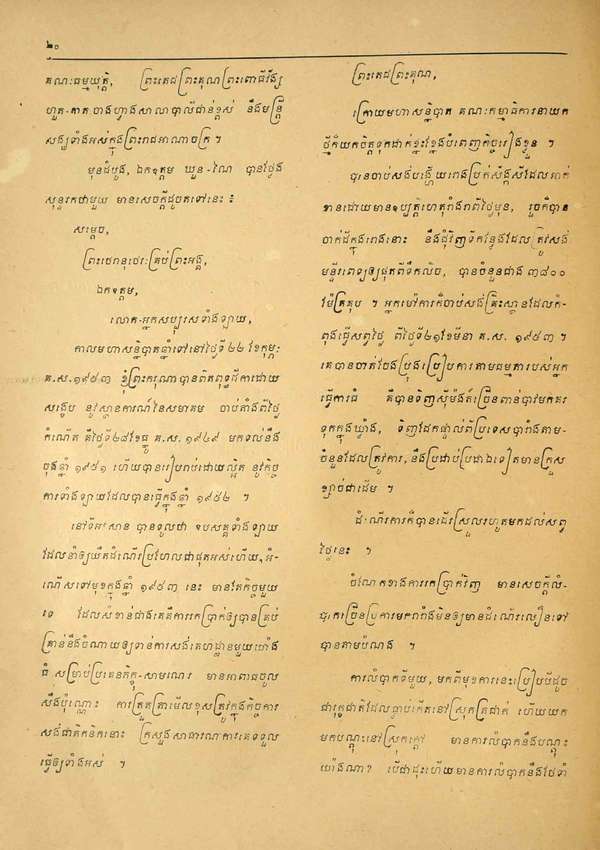 ២០
គណៈធម្មយុត្តិ, ព្រះតេជព្រះគុណព្រះពោធិវ័ង្ស
ហួត-តាត ចាងហ្វាងសាលាបាលីជាន់ខ្ពស់ នឹងមន្ត្រី
សង្ឃទាំងអស់ក្នុងព្រះរាជអាណាចក្រ ។
មុនដំបូង, ឯកឧត្តម ឃួន-ណៃ បានថ្លែង
សុន្ទរកថាមួយ មានសេចក្តីដូចតទៅនេះ ៖
សម្តេច,
ព្រះថេរានុថេរៈគ្រប់ព្រះអង្គ,
ឯកឧត្តម,
លោក-អ្នកសប្បុរសទាំងឡាយ,
កាលមហាសន្និបាតឆ្នាំទៅនៅថ្ងៃទី ២២ ខែកុម្ភៈ
គ.ស. ១៩៥៣ ខ្ញុំព្រះករុណាបានពិតពុទ្ធដីកាដោយ
សង្ខេប នូវស្ថានការណ៍នៃសមាគម ចាប់តាំងពីថ្ងៃ
កំណើត គឺថ្ងៃទី២៨ខែធ្នូ គ.ស. ១៩៤៩ មកទល់នឹង
ចុងឆ្នាំ ១៩៥១ ហើយបានរៀបរាប់ដោយល្អិត នូវកិច្ច
ការទាំងឡាយដែលបានធ្វើក្នុងឆ្នាំ ១៩៥២ ។
នៅទីអវសាន បានទូលថា ឧបសគ្គទាំងឡាយ
ដែលនាំឲ្យយឺតដំណើរប្រហែលជាផុតអស់ហើយ, អំ-
ណើសទៅមុខក្នុងឆ្នាំ ១៩៥៣ នេះ មានតែកិច្ចមួយ
ទេ ដែលសំខាន់ជាងគេគឺការរកប្រាក់ឲ្យបានគ្រប់
គ្រាន់នឹងចំណាយឲ្យទាន់ការសង់គេហដ្ឋានមួយយ៉ាង
ធំ សម្រាប់ប្រគេនភិក្ខុ-សាមណេរ មានអាពាធចូល
សឹងប៉ុណ្ណោះ ការត្រួតត្រាមើលខុសត្រូវក្នុងកិច្ចការ
សង់ជាតិកនិកនោះ ក្រសួងសាធារណការគេទទួល
ធ្វើឲ្យទាំងអស់ ។
ព្រះតេជព្រះគុណ,
ក្រោយមហាសន្និបាត គណៈកម្មាធិការនាយក
ថ្មីក៏យកចិត្តទុកដាក់ខ្នះខ្នែងបំពេញកិច្ចរៀងខ្លួន ។
បានចាប់សង់បង្ហើយរោងប្រក់ស័ង្កសីដែលអាក់
ខានដោយមានឧប្បត្តិហេតុរាំងរាពីថ្ងៃមុន, រួចក៏បាន
ចាក់ដីក្នុងរោងនោះ នឹងជុំវិញទីកន្លែងដែលត្រូវសង់
មន្ទីរពេទ្យឲ្យផុតពីទឹកលិច, បានចំនួនជាង ៣៨០០
ម៉ែត្រគុប ។ អ្នកម៉ៅការក៏ចាប់សង់គ្រឹះស្ថានដែលកំ-
ពុងធ្វើសព្វថ្ងៃ ពីថ្ងៃទី២១ខែមីនា គ.ស. ១៩៥៣ ។
គេបានចាត់ចែងប្រុងប្រៀបការតាមធម្មតារបស់អ្នក
ធ្វើការធំ គឺបានទិញស៊ីម៉ង់ត៍ច្រើនពាន់បាវមកគរ
ទុកក្នុងឃ្លាំង, ទិញដែកផ្ទាល់ពីប្រទេសបារាំងតាម-
ចំនួនដែលត្រូវការ, នឹងប្រជាប់ប្រដាឯទៀតមានគ្រួស
ខ្សាច់ជាដើម ។
ដំណើរការក៏បានដើរស្រួលរហូតមកដល់សព្វ
ថ្ងៃនេះ ។
ចំណែកខាងការរកប្រាក់វិញ មានសេចក្តីលំ-
បាកច្រើនប្រការមករាំងមិនឲ្យមានដំណើរលឿនទៅ
បានតាមបំណង ។
ការលំបាកទីមួយ, មកពីមុខការនេះប្រៀបបីដូច
ជារុក្ខជាតិដែលធ្លាប់កើតនៅស្រុកត្រជាក់ ហើយយក
មកបណ្តុះនៅស្រុកក្តៅ មានការលំបាកនឹងបណ្តុះ
យ៉ាងណា? បើជាដុះហើយមានការលំបាកនឹងថែទាំ